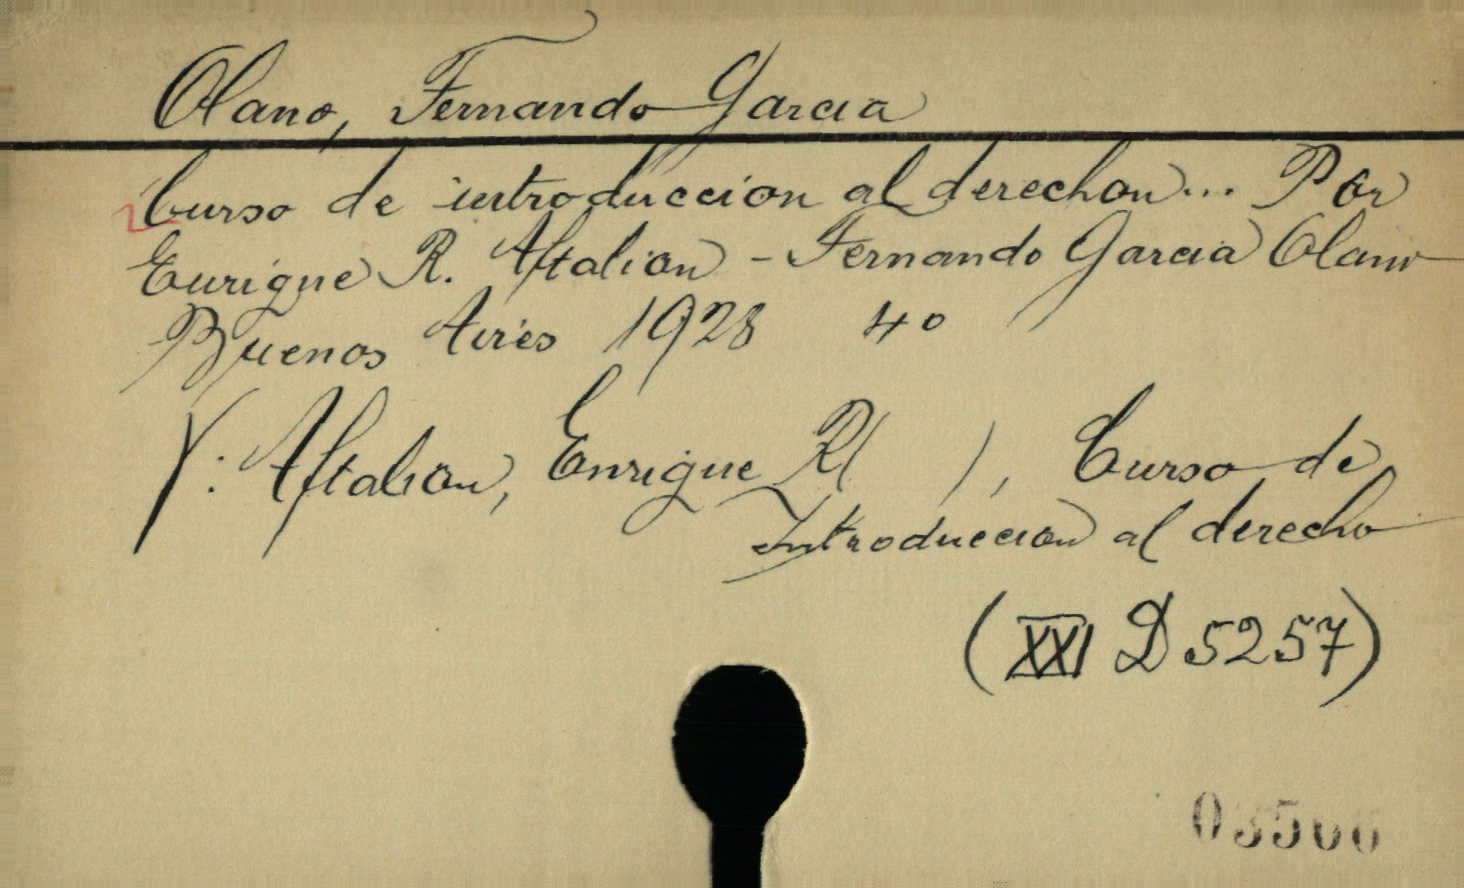 Olano, Fernando Garcia
Curso de introduccion al derechon... Por
Enrique R. Aftalion - Fernando Garcia Olano
Buenos Aires 1928 4º
V: Aftalion, Enrique R( ), Curso de
Introduccion al derecho
(XXI D 5257)
03566